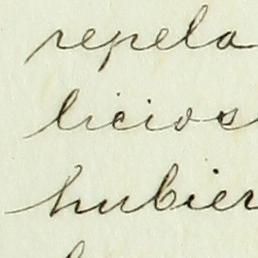 repela
licios
hubier